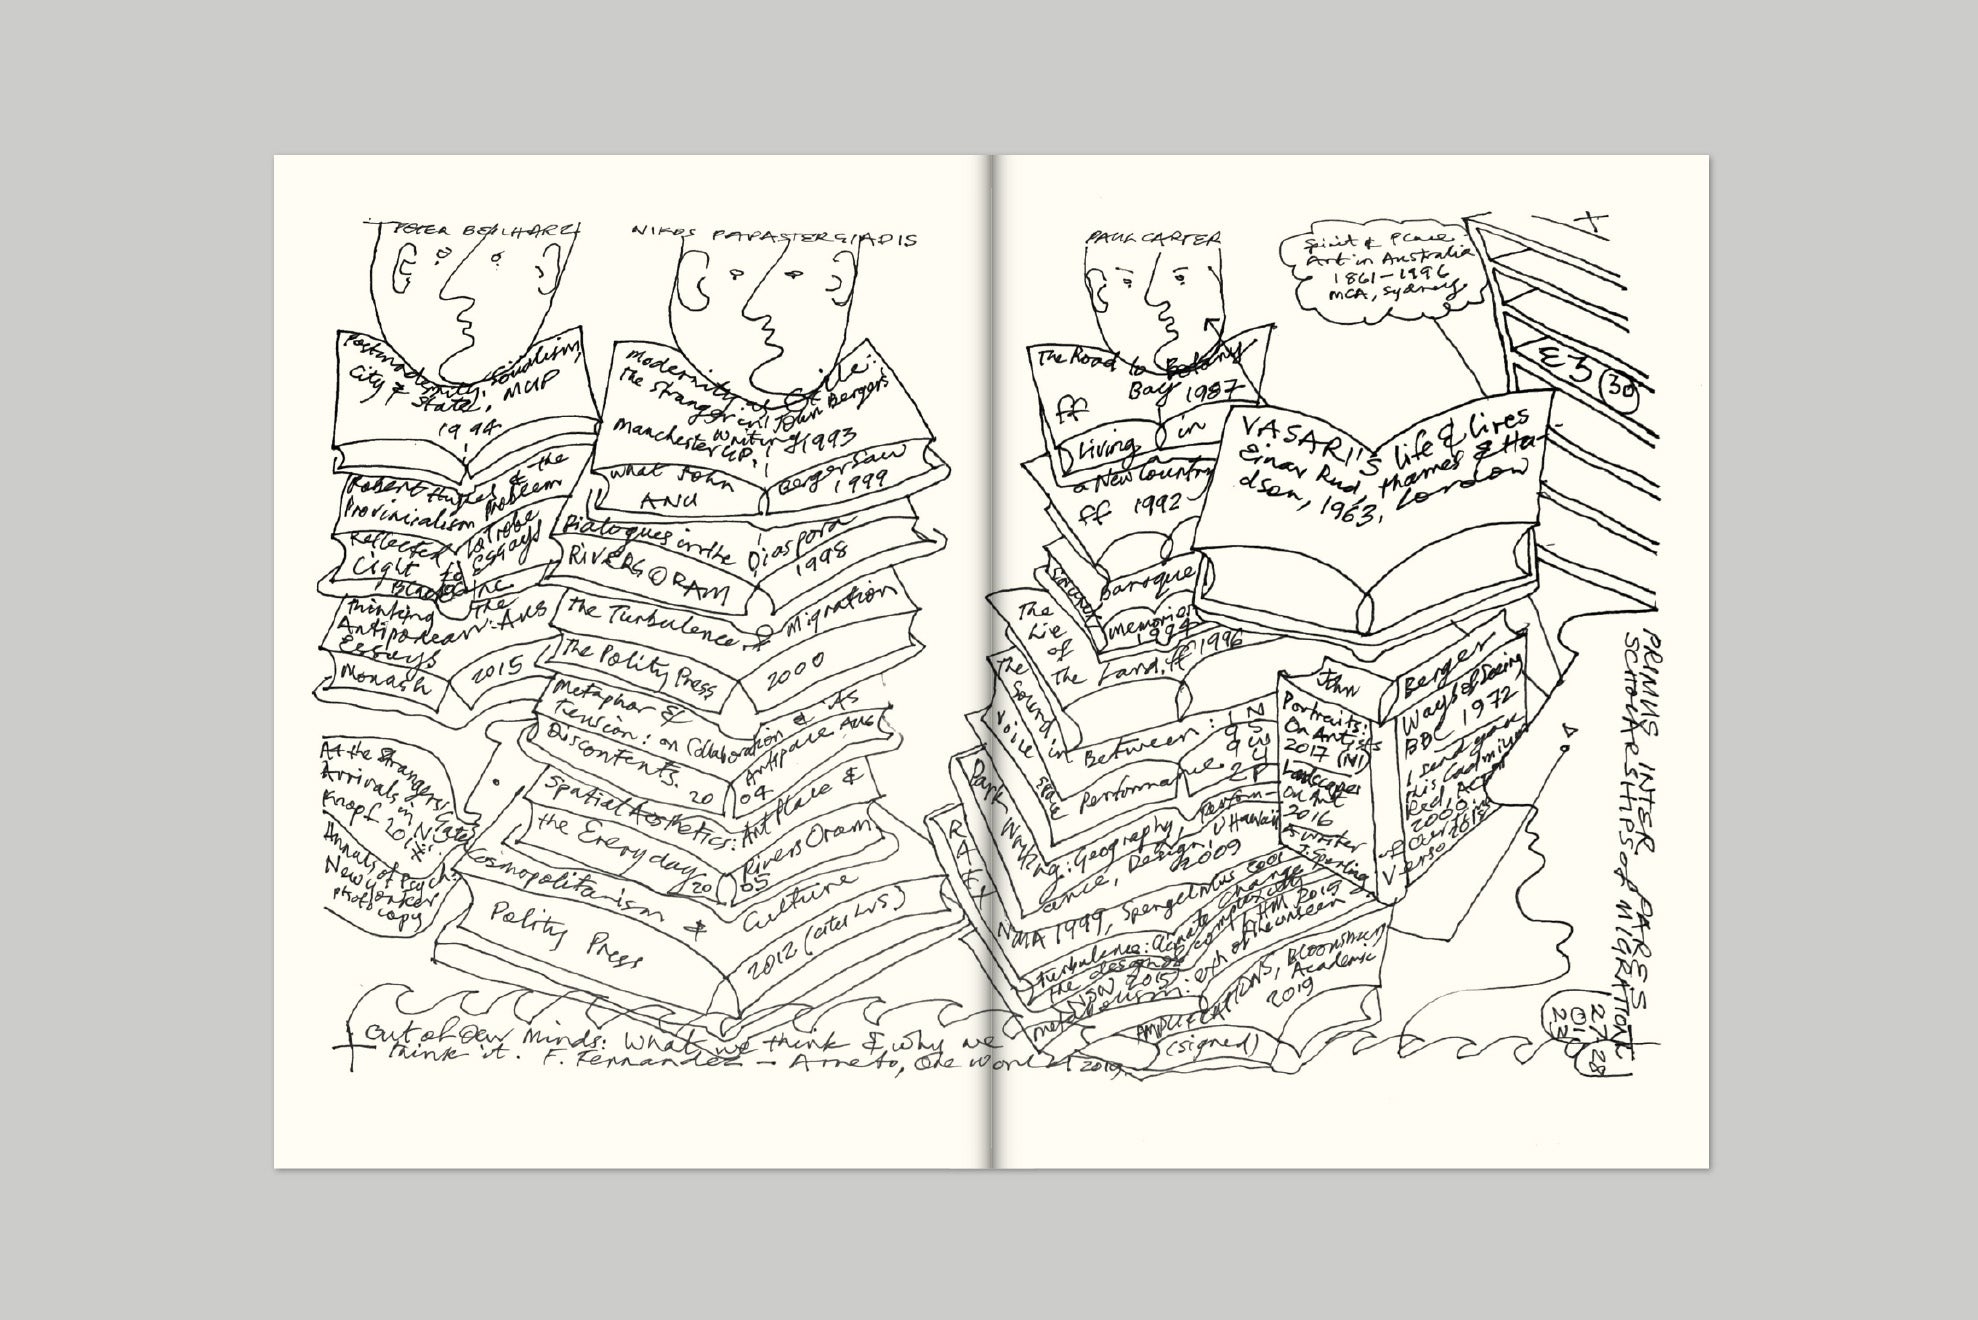 PETER BEILHARZ
Postmodernity: Socialism,
City & State, MUP
1994
Robert Hughes & the
Provincialism Problem
Reflected La Trobe
Light Essays
Black Inc
Thinking the
Antipodean: Aus
Essays
Monash 2015
At the Strangers' Gate
Arrivals in N.Y.
Knopf 20
Annals of Psych:
New Yorker
photocopy
NIKOS PAPASTERGIADIS
Modernity as Exile:
the Stranger in John Bergers
writing
Manchester UP, 1993
What John Berger Saw
ANU 1999
Dialogues in the Diaspora
RIVERS ORAM 1998
the Turbulence of Migration
The Polity Press 2000
Metaphor &
Tension: on Collaboration & its
Discontents. 2004
Artspace Aus
Spatial Aesthetics: Art Place &
the Everyday 2005
Rivers Oram
Cosmopolitanism & Culture
Polity Press 2012
out of our minds: What we think & why we
think it. F. Fernandez - Armesto, One World 2019
PAUL CARTER
The Road to Botany
Bay 1987
ff
Living in
a New Country
ff 1992
Baroque
memories
1994
The
Lie
of
The Land, ff 1996
The
Sound in Between:
voice space Performance
Dark Writing: Geography, Perform-
ance, Design, U Hawaii
2009
NMA 1999, Spengelmus
Turbulence: climate change
& the design of complexity
NSW 2015
metabolism: of the unseen
AMPLIFICATIONS, Bloomsbury
Academic
2019
(signed)
Spirit & Place:
Art in Australia
1861-1996
MCA, Sydney
E3 30
VASARI'S life & lives
Einar Rud, thames & Hu-
dson, 1963, London
John Berger
Portraits:
On Artists
2017
Landscapes
On Art
2016
Ways of Seeing
BBC 1972
I send you
this Cadmium
Red, ACT
2000
Verso
PRIMUS INTER PARES
SCHOLARSHIPS of MIGRATION
27
01
22
28